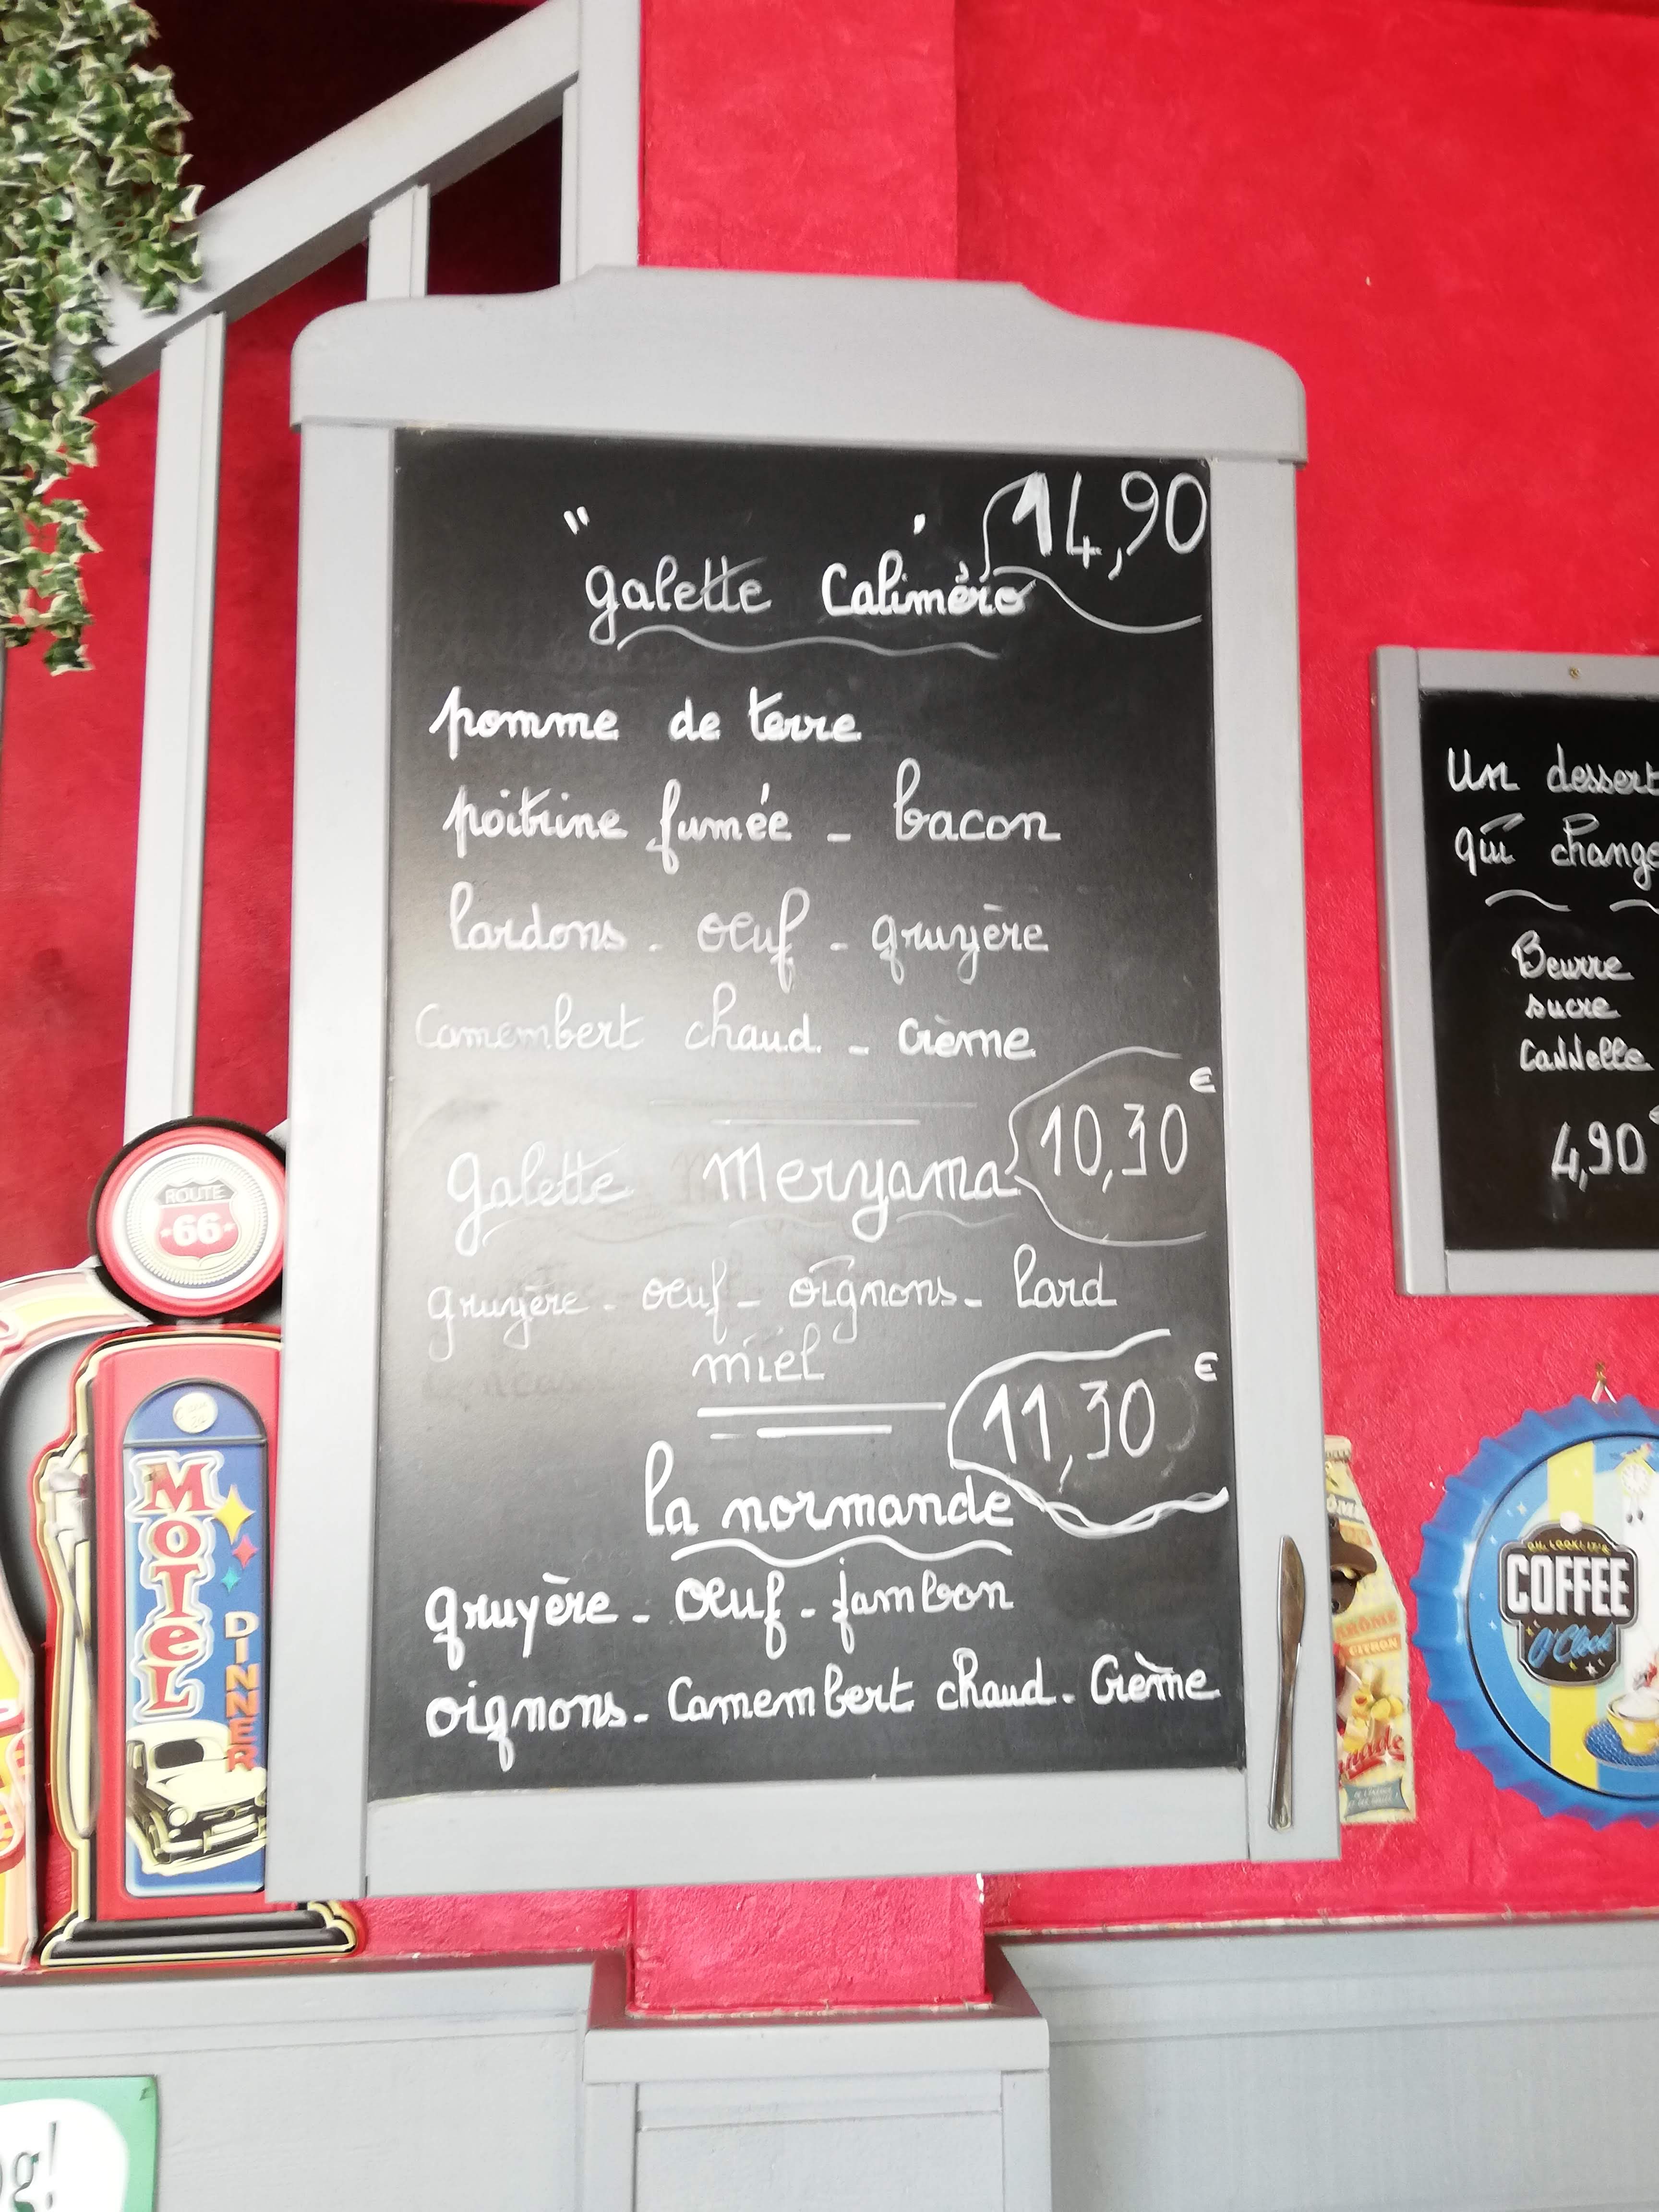 14,90
" galette Calimèro "
pomme de terre
poitrine fumée - bacon
lardons - oeuf - gruyère
Camembert chaud - Crème
10,30 €
galette Meryama
gruyère - oeuf - oignons - lard
miel
11,30 €
la normande
gruyère - oeuf - jambon
oignons - Camembert chaud - Crème
Un dessert
qui change
Beurre
sucre
Cannelle
4,90 €
ROUTE
66
MOTEL
DINNER
OH, LOOK! IT'S
COFFEE
O'Clock
ARÔME
CITRON